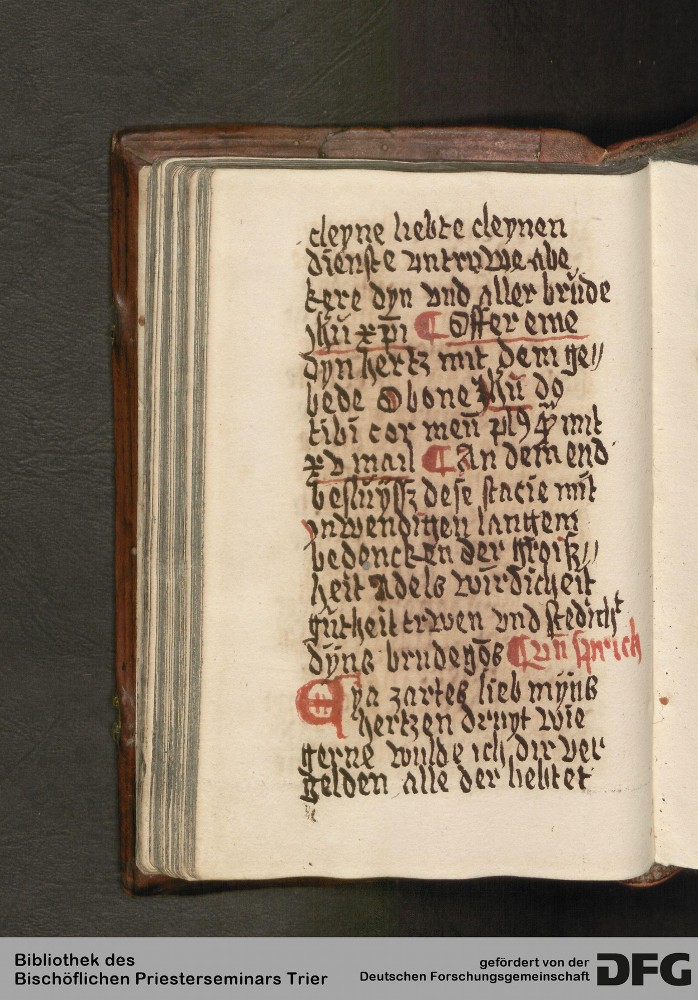 cleyne liebte cleynen
dienste vntruwe abe
kere dyn vnd aller brude
jhū xp̄i ¶ Offer eme
dyn hertz mit dem ge〃
bede O bone jhū do
tibi cor meū mit
xv mail ¶ An dem end
besluyssz dese stacie mit
ynwendigen langem
bedencken der groiß〃
heit Adels wirdicheit
gutheit truwen vnd stedicht
dyns brudegōs ¶ vn̄ sprich
Eya zartes lieb myns
hertzen druyt wie
gerne wulde ich dir ver
gelden alle der liebtet
Bibliothek des
Bischöflichen Priesterseminars Trier
gefördert von der
Deutschen Forschungsgemeinschaft
DFG